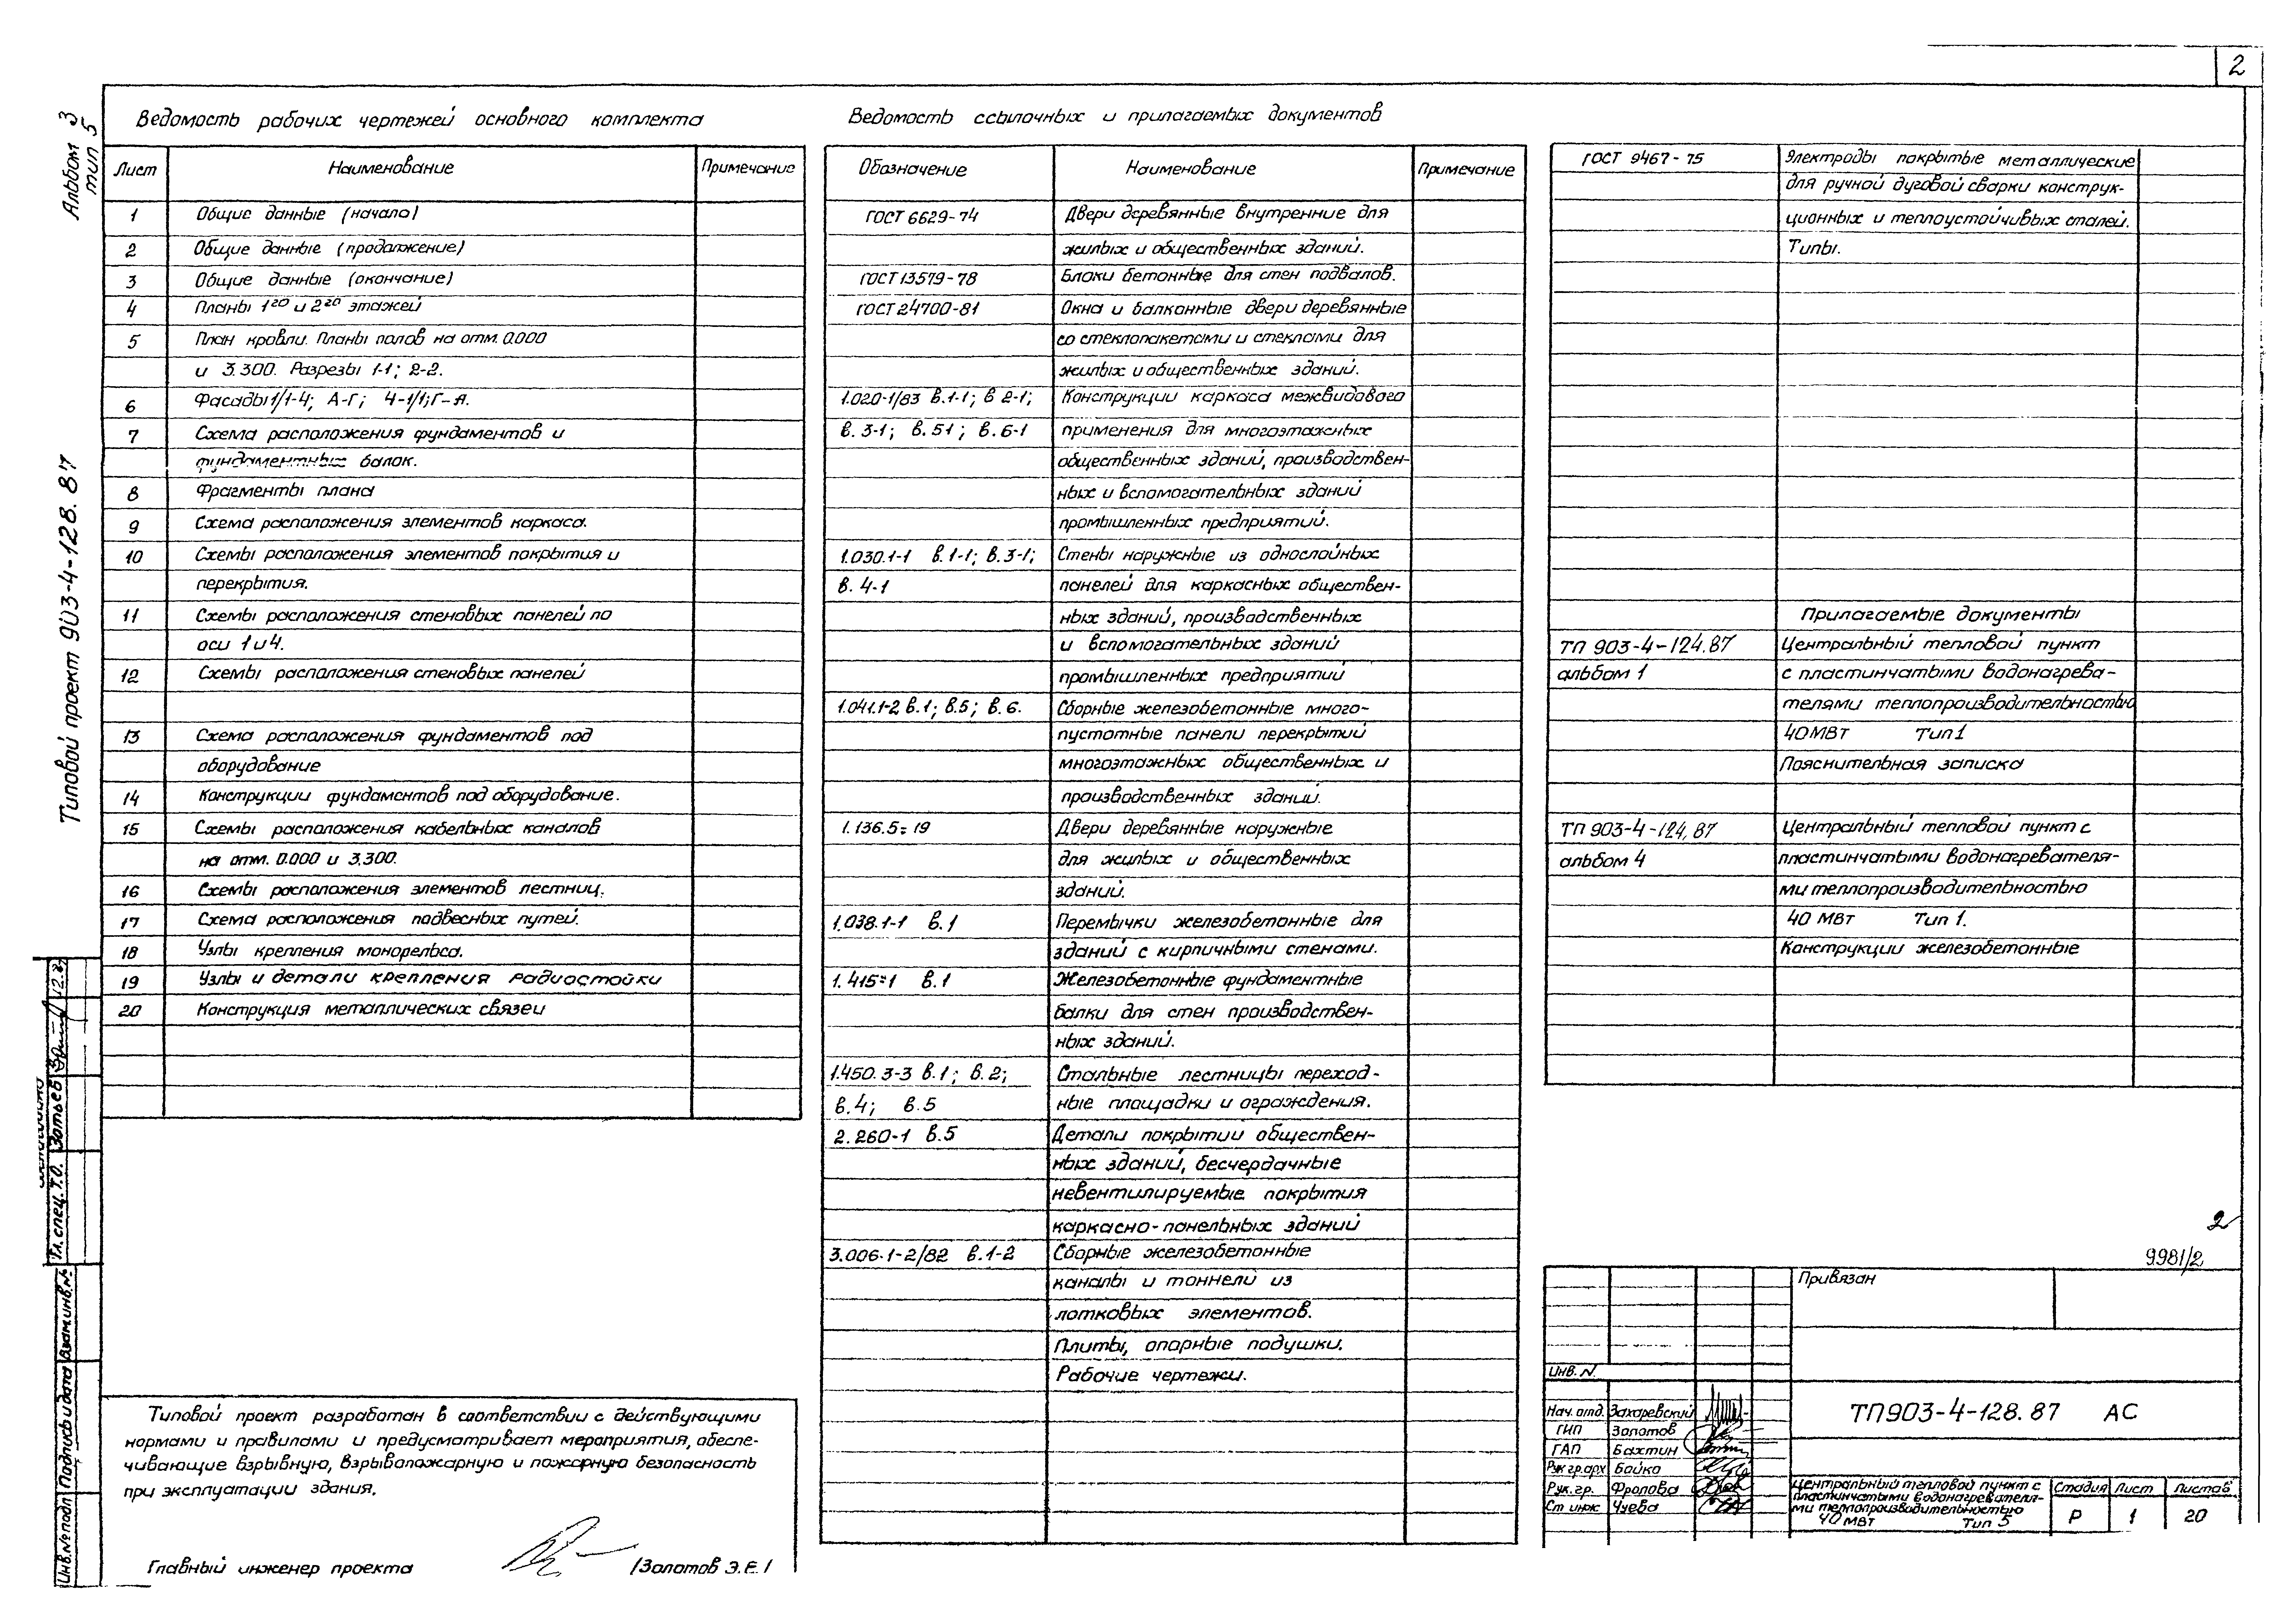 2
Альбом 3
тип 5
Типовой проект 903-4-128.87
Ведомость рабочих чертежей основного комплекта
Лист Наименование Примечание
1 Общие данные (начало)
2 Общие данные (продолжение)
3 Общие данные (окончание)
4 Планы 1го и 2го этажей
5 План кровли. Планы полов на отм. 0.000
и 3.300. Разрезы 1-1; 2-2.
6 Фасады 1/1-4; А-Г; 4-1/1; Г-А.
7 Схема расположения фундаментов и
фундаментных балок.
8 Фрагменты плана
9 Схема расположения элементов каркаса.
10 Схемы расположения элементов покрытия и
перекрытия.
11 Схемы расположения стеновых панелей по
оси 1 и 4.
12 Схемы расположения стеновых панелей
13 Схема расположения фундаментов под
оборудование
14 Конструкции фундаментов под оборудование.
15 Схемы расположения кабельных каналов
на отм. 0.000 и 3.300.
16 Схемы расположения элементов лестниц.
17 Схема расположения подвесных путей.
18 Узлы крепления монорельса.
19 Узлы и детали крепления радиостойки
20 Конструкция металлических связей
Типовой проект разработан в соответствии с действующими
нормами и правилами и предусматривает мероприятия, обеспе-
чивающие взрывную, взрывопожарную и пожарную безопасность
при эксплуатации здания.
Главный инженер проекта /Золотов Э.Е./
Ведомость ссылочных и прилагаемых документов
Обозначение Наименование Примечание
ГОСТ 6629-74 Двери деревянные внутренние для
жилых и общественных зданий.
ГОСТ 13579-78 Блоки бетонные для стен подвалов.
ГОСТ 24700-81 Окна и балконные двери деревянные
со стеклопакетами и стеклами для
жилых и общественных зданий.
1.020-1/83 в.1-1; в 2-1; Конструкции каркаса межвидового
в. 3-1; в. 5-1; в. 6-1 применения для многоэтажных
общественных зданий, производствен-
ных и вспомогательных зданий
промышленных предприятий.
1.030.1-1 в.1-1; в.3-1; Стены наружные из однослойных
в. 4-1 панелей для каркасных обществен-
ных зданий, производственных
и вспомогательных зданий
промышленных предприятий
1.041.1-2 в.1; в.5; в.6. Сборные железобетонные много-
пустотные панели перекрытий
многоэтажных общественных и
производственных зданий.
1.136.5-19 Двери деревянные наружные
для жилых и общественных
зданий.
1.038.1-1 в.1 Перемычки железобетонные для
зданий с кирпичными стенами.
1.415-1 в.1 Железобетонные фундаментные
балки для стен производствен-
ных зданий.
1.450.3-3 в.1; в.2; Стальные лестницы переход-
в.4; в.5 ные площадки и ограждения.
2.260-1 в.5 Детали покрытии обществен-
ных зданий, бесчердачные
невентилируемые покрытия
каркасно-панельных зданий
3.006.1-2/82 в.1-2 Сборные железобетонные
каналы и тоннели из
лотковых элементов.
Плиты, опорные подушки.
Рабочие чертежи.
ГОСТ 9467-75 Электроды покрытые металлические
для ручной дуговой сварки конструк-
ционных и теплоустойчивых сталей.
Типы.
Прилагаемые документы
ТП 903-4-124.87 Центральный тепловой пункт
альбом 1 с пластинчатыми водонагрева-
телями теплопроизводительностью
40МВт Тип 1
Пояснительная записка
ТП 903-4-124.87 Центральный тепловой пункт с
альбом 4 пластинчатыми водонагревателя-
ми теплопроизводительностью
40 МВт Тип 1.
Конструкции железобетонные
2
9981/2
Привязан
Инв. N
Нач. отд. Захаревский
ГИП Золотов
ГАП Бахтин
Рук гр. арх Бойко
Рук. гр. Фролова
Ст инж Чуева
ТП903-4-128.87 АС
Центральный тепловой пункт с
пластинчатыми водонагревателя-
ми теплопроизводительностью
40 МВт Тип 5
Стадия Лист Листов
Р 1 20
Гл. спец. Т.О. Зотьев
Инв. № подл Подпись и дата Взам инв. №